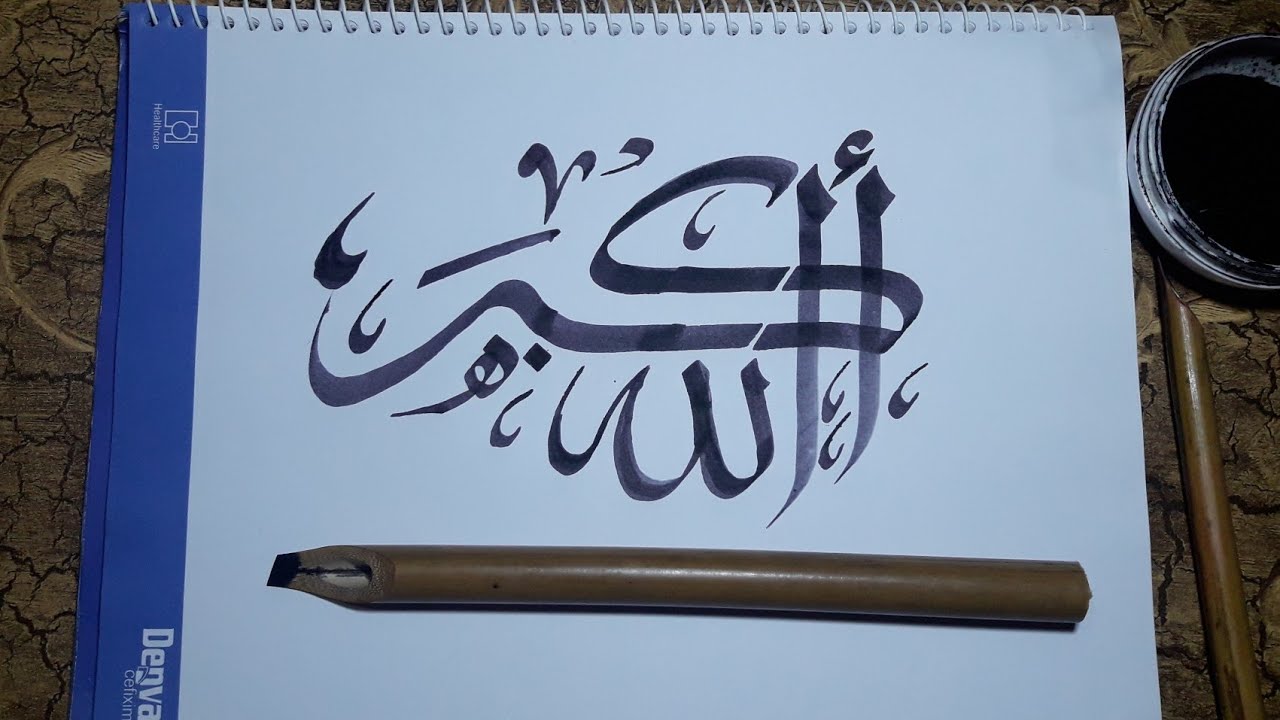 الله أكبر
Healthcare
Denva
cefixim